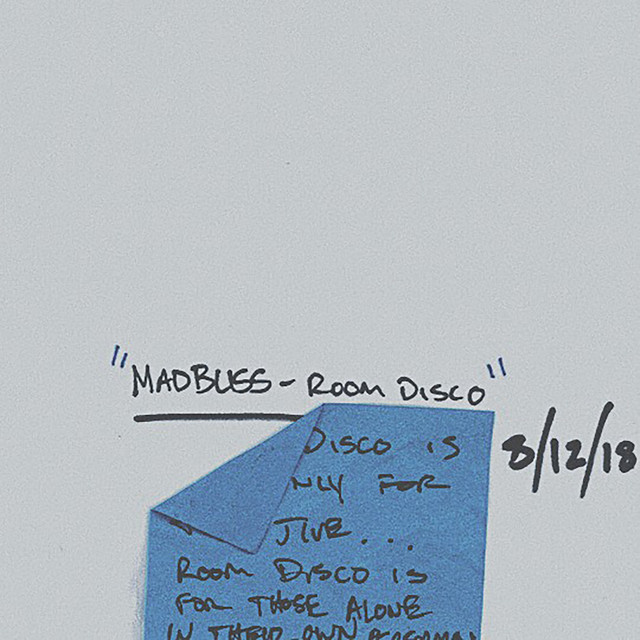 "MADBLISS - ROOM DISCO"
8/12/18
DISCO IS
NLY FOR
JIVE...
ROOM DISCO IS
FOR THOSE ALONE
IN THEIR OWN PERSONAL